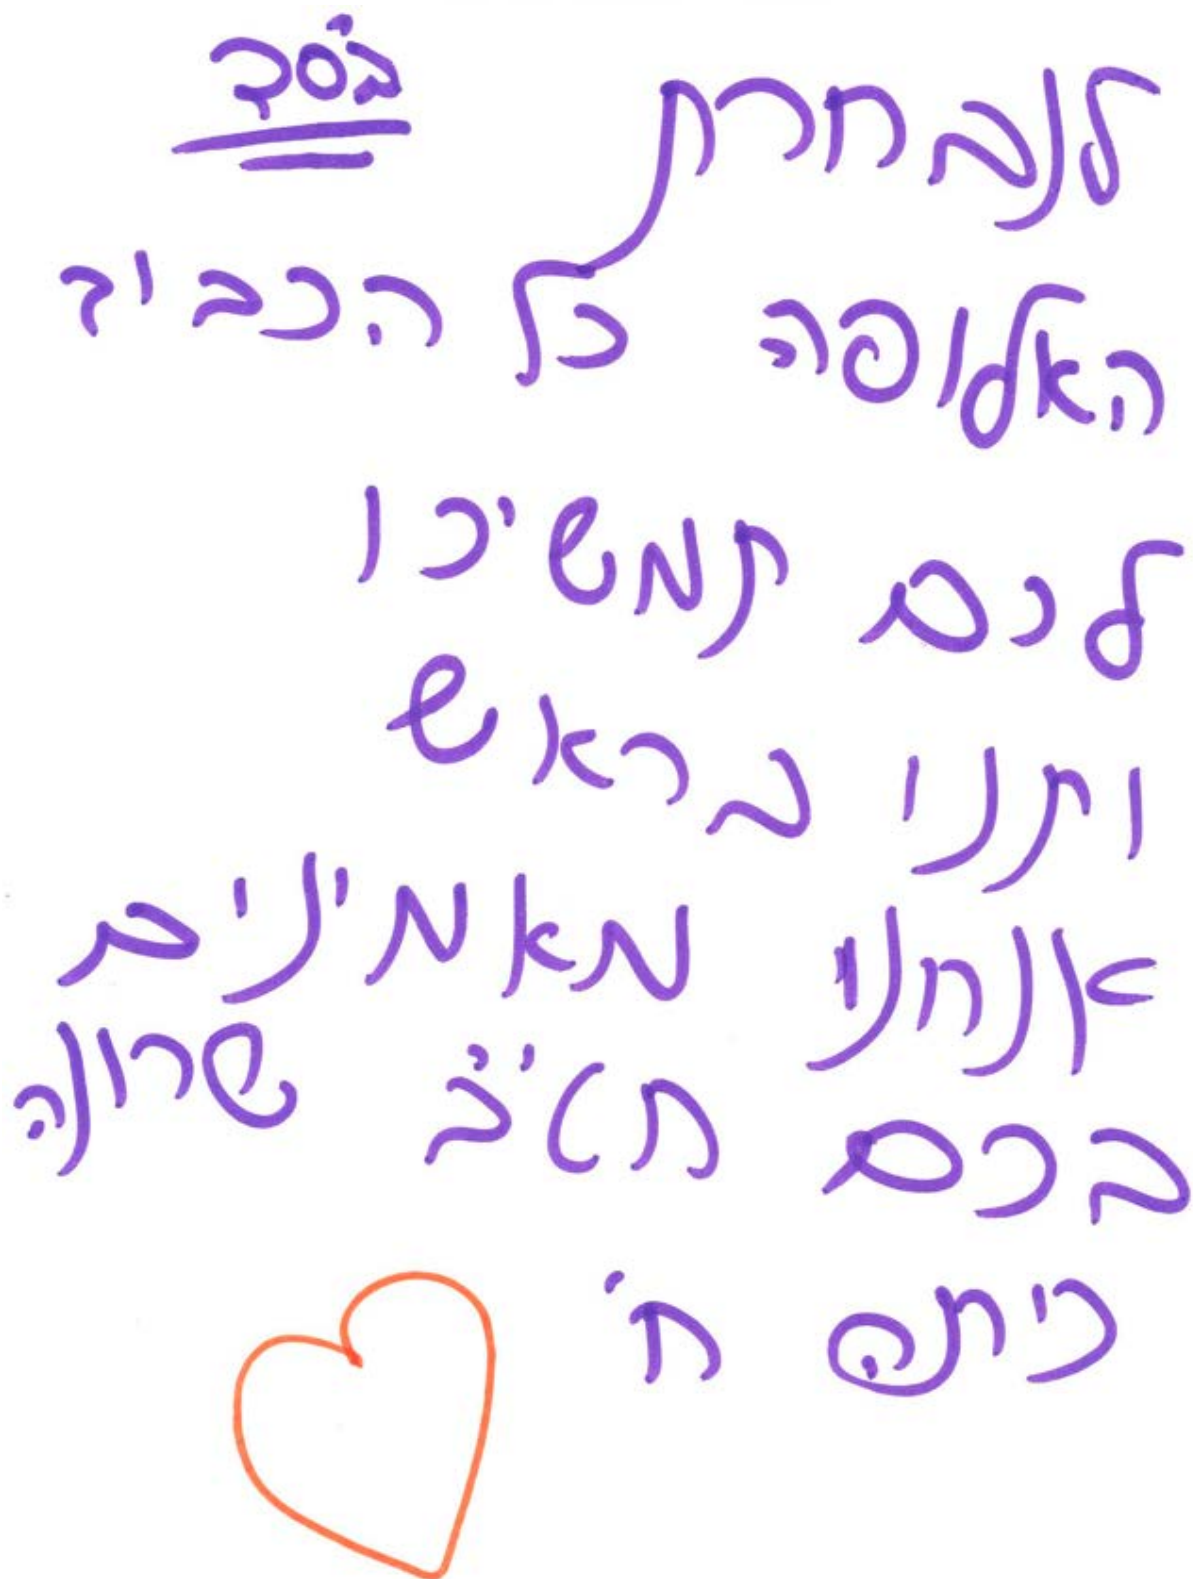 בס"ד
לנבחרת
האלופה כל הכביד
לכם תמשיכו
ותנו בראש
אנחנו מאמינים
בכם חט"ב שרונה
כיתה ח'